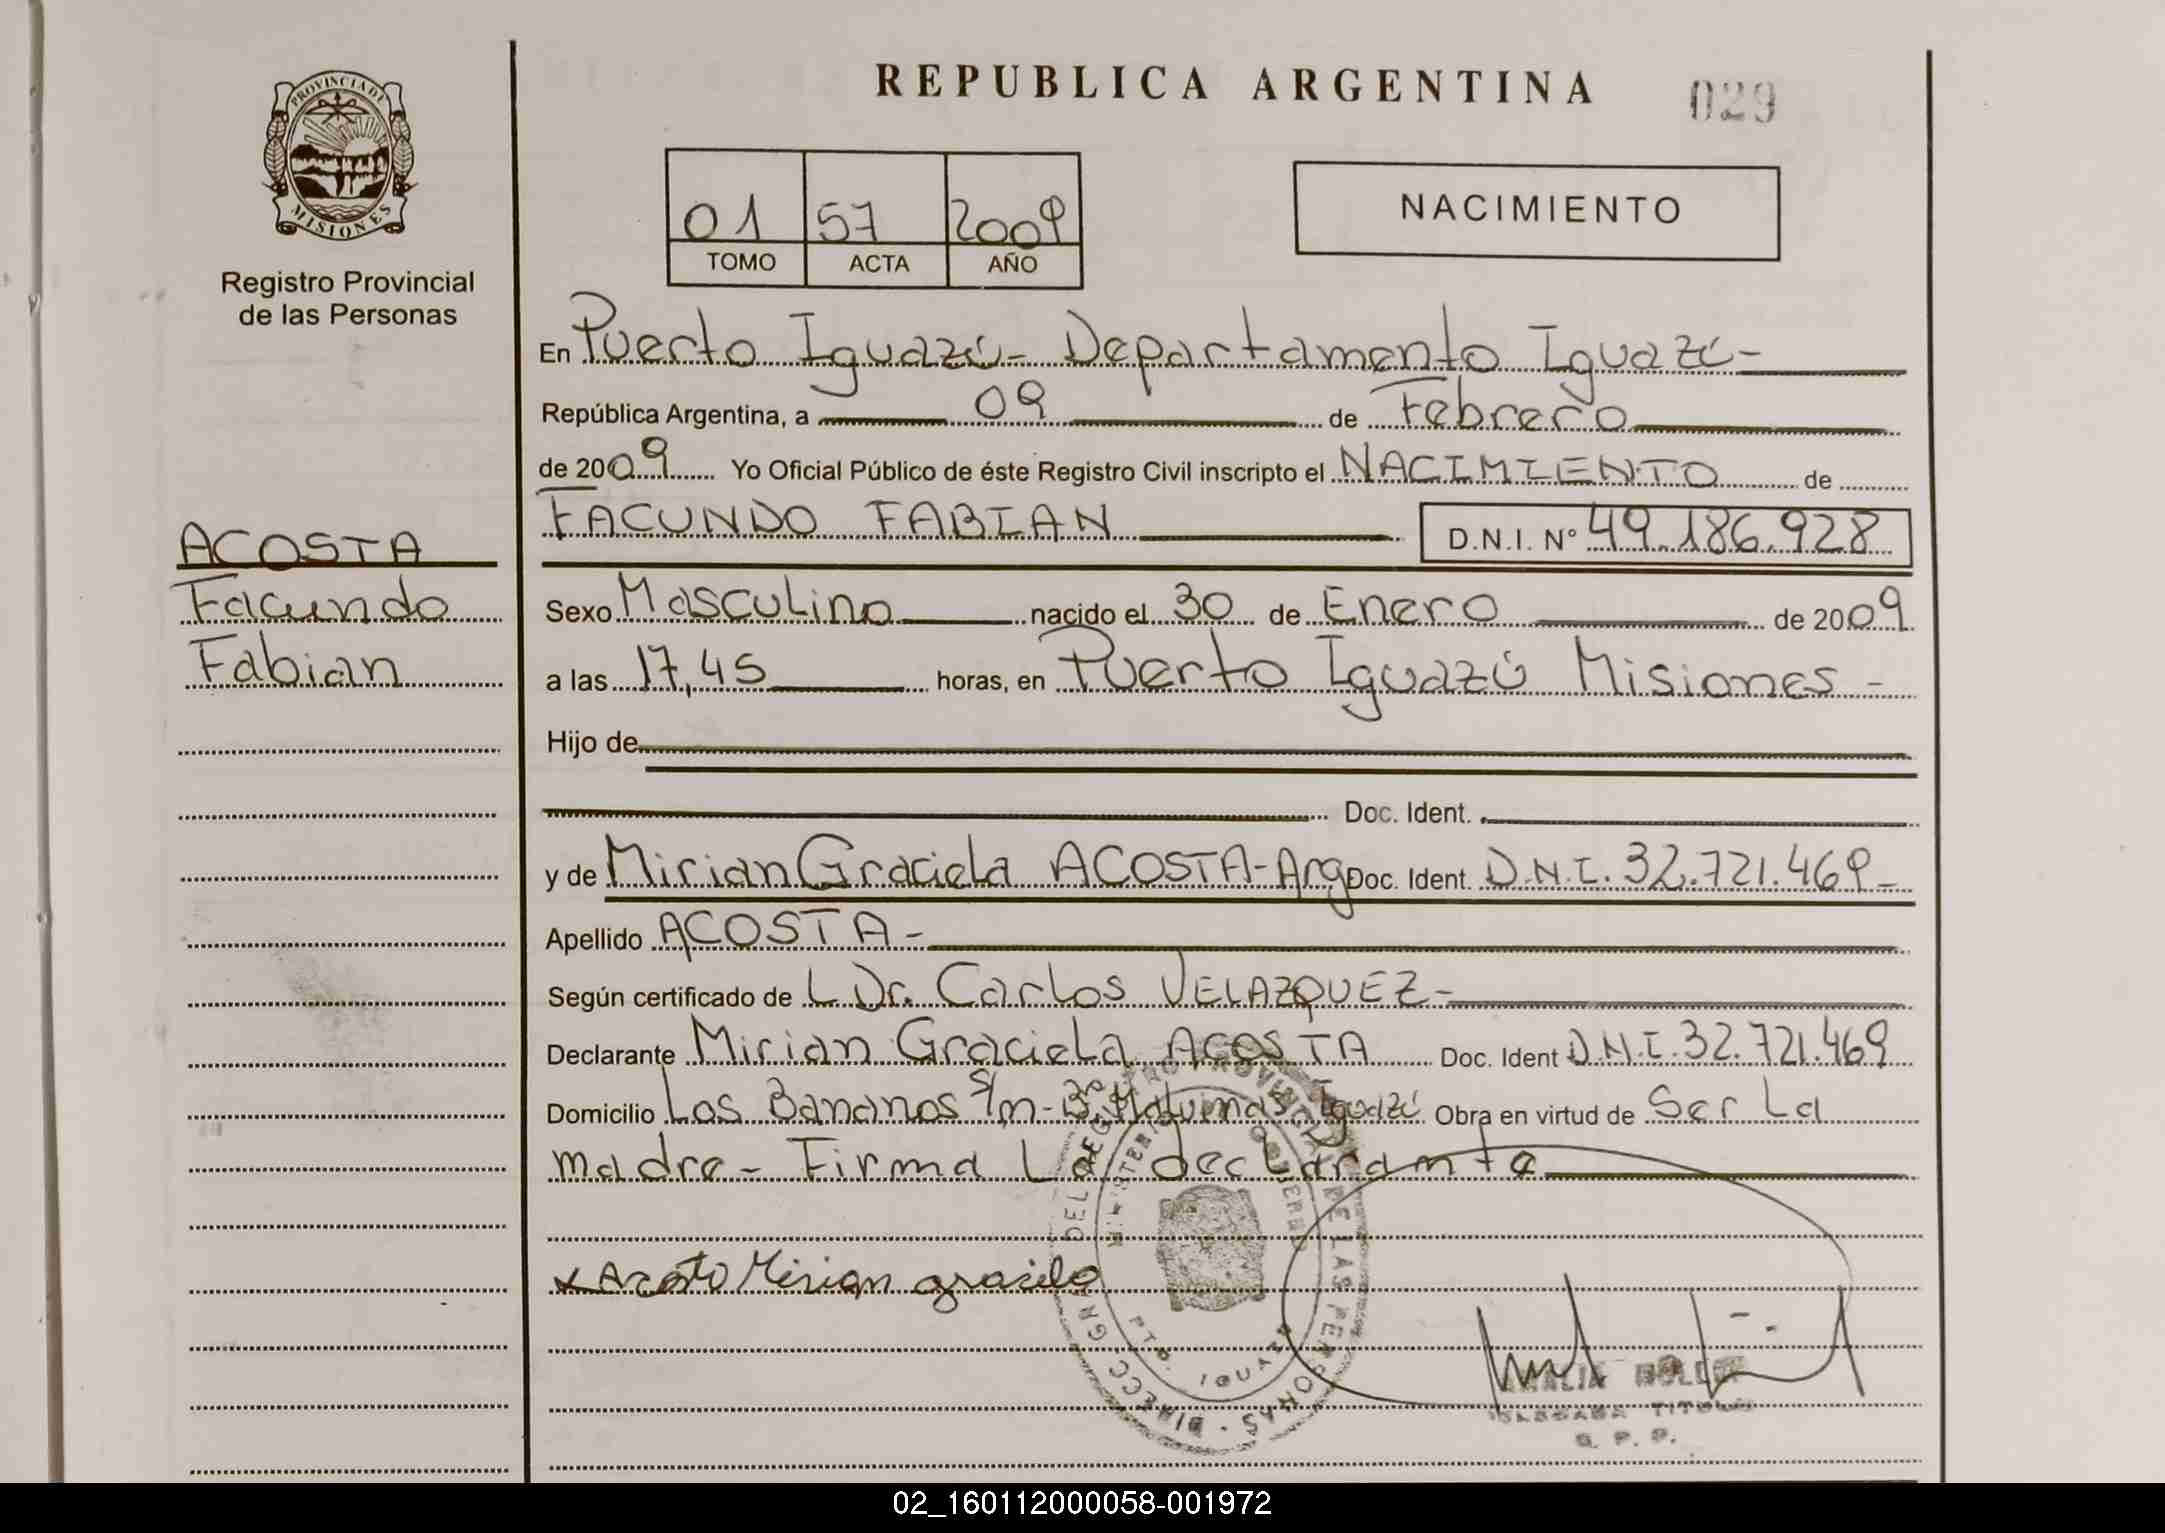 REPUBLICA ARGENTINA
029
PROVINCIA DE
MISIONES
Registro Provincial
de las Personas
01 57 2009
TOMO ACTA AÑO
NACIMIENTO
En Puerto Iguazú - Departamento Iguazú -
República Argentina, a 09 de Febrero
de 2009 Yo Oficial Público de éste Registro Civil inscripto el NACIMIENTO de
FACUNDO FABIAN D.N.I. Nº 49.186.928
ACOSTA
Facundo
Fabian
Sexo Masculino nacido el 30 de Enero de 2009
a las 17,45 horas, en Puerto Iguazú Misiones -
Hijo de
Doc. Ident.
y de Mirian Graciela ACOSTA - Arg Doc. Ident. D.N.I. 32.721.469 -
Apellido ACOSTA -
Según certificado de L Dr. Carlos VELAZQUEZ -
Declarante Mirian Graciela ACOSTA Doc. Ident D.N.I. 32.721.469
Domicilio Los Bananos S/n - Bº Malvinas Iguazú Obra en virtud de Ser La
madre - Firma La declarante
x Acosta Mirian grasiela
DIRECC. GRAL. DEL REGISTRO PROVINCIAL DE LAS PERSONAS
MINISTERIO DE GOBIERNO
PTO. IGUAZU
TITULAR
R. P. P.
02_160112000058-001972